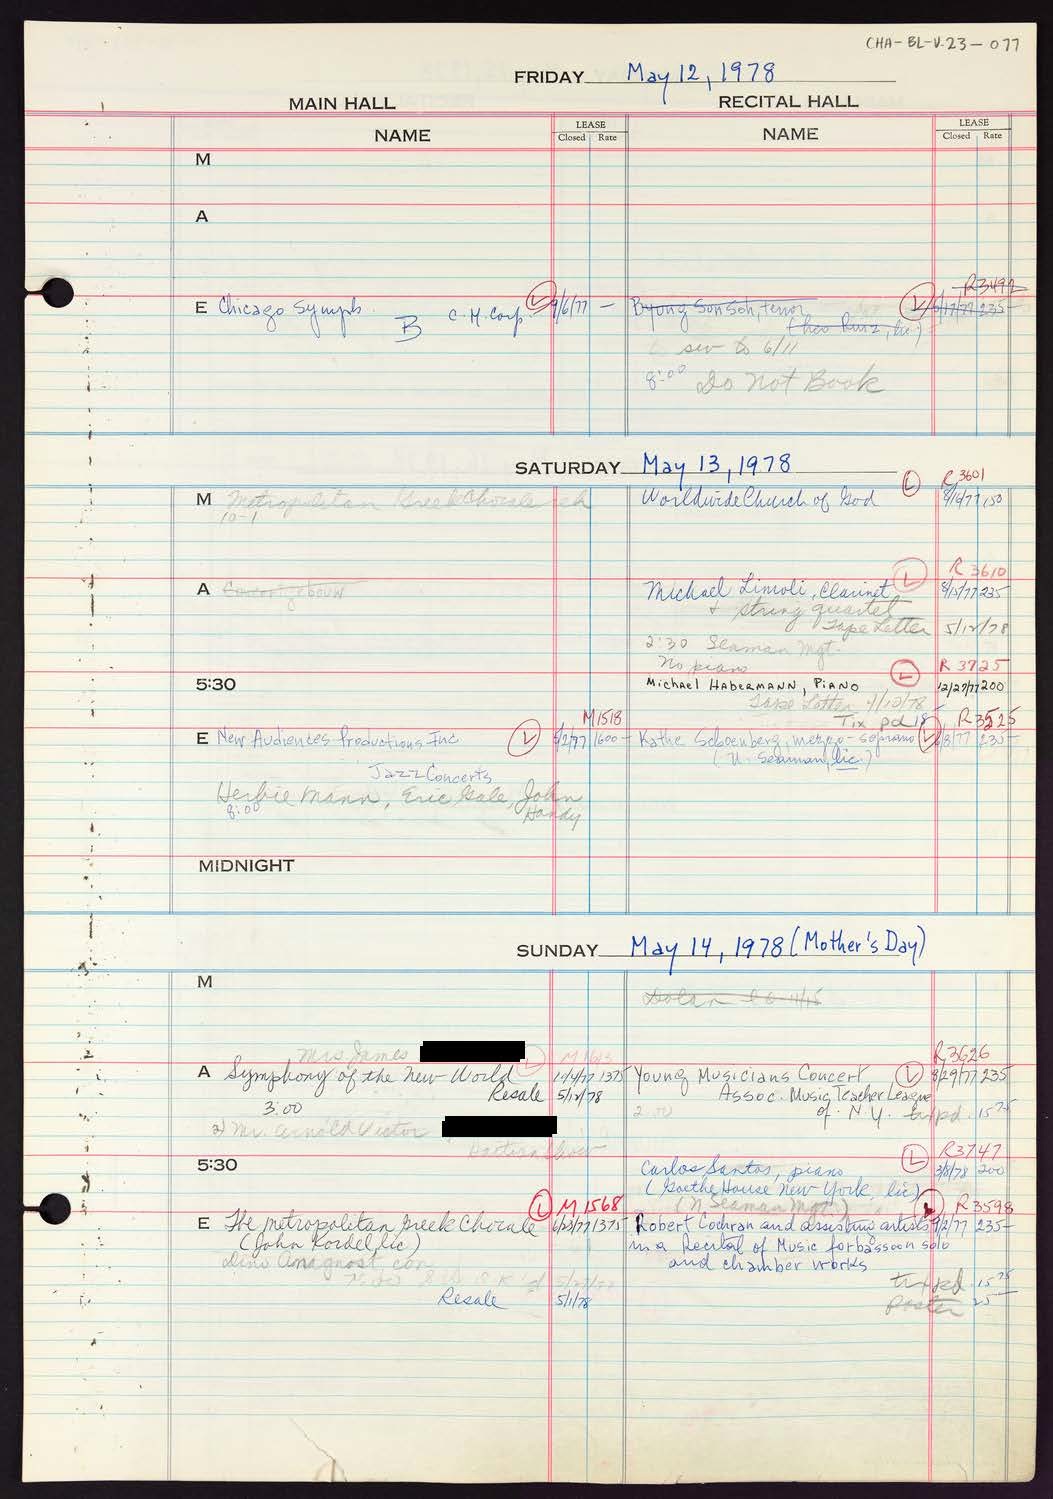 CHA-BL-V.23-077
FRIDAY May 12, 1978
MAIN HALL
RECITAL HALL
NAME
LEASE
Closed Rate
NAME
LEASE
Closed Rate
M
A
R3492
E Chicago Symph. B C.M. Corp. L 9/6/77 —
Byung Son Soh, tenor L 6/17/77 235—
(Theo Ruiz, lic.)
sev to 6/11
8:00 Do Not Book
SATURDAY May 13, 1978
M Metropolitan Greek Chorale
10-1
L R3601
Worldwide Church of God 150
A Concertgebouw
L R3610
Michael Limoli, Clarinet 235
+ string quartet
Tape Letter 5/12/78
2:30 Seaman Mgt.
No piano
L R3725
5:30
Michael Habermann, Piano 12/27/77 200
Tape Letter 4/12/78
Tix pd 18
M1518
R3525
E New Audiences Productions Inc L 5/2/77 1600—
Kathe Schoenberg, mezzo-soprano L 6/8/77 235—
(N. Seaman, lic.)
Jazz Concerts
Herbie Mann, Eric Gale, John Handy
8:00
MIDNIGHT
SUNDAY May 14, 1978 (Mother's Day)
M
Dolan
Mrs James
L M1613
R3626
A Symphony of the New World 1375
Resale 5/12/78
3:00
2) Mr. Arnold Victor
Young Musicians Concert L 8/29/77 235
Assoc. Music Teacher League
of N.Y. tix pd. 15
2:00
5:30
L R3747
Carlos Santos, piano 3/8/78 200
(Goethe House New York, lic)
(N. Seaman Mgt.)
L M1568
L R3598
E The Metropolitan Greek Chorale 6/23/77 1375
(John Kordel, lic)
Dino Anagnost, con
Resale 5/1/78
Robert Cochran and assisting artists 235—
in a Recital of Music for bassoon solo
and chamber works
tix pd. 15
Poster 25